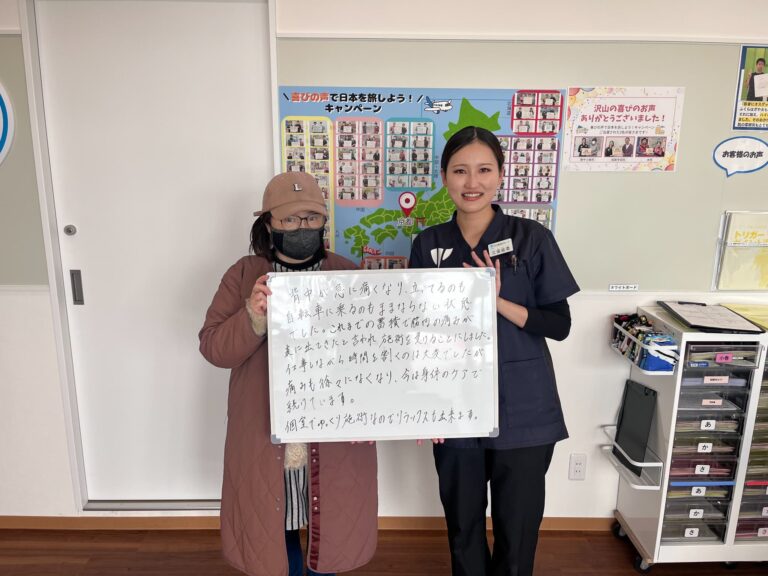 \喜びの声で日本を旅しよう！／
キャンペーン
京都
沢山の喜びのお声
ありがとうございました！
お客様のお声
トリガー
ホワイトボード
L
背中が急に痛くなり、立てるのも
自転車に乗るのもままならない状態
でした。これまでの蓄積で筋肉の痛みが
表に出てきたと言われ施術を受けることにしました。
仕事しながら時間を割くのは大変でしたが
痛みも徐々になくなり、今は身体のケアで
続けています。
個室でゆっくり施術なのでリラックスも出来ます。
あ
か
さ
あ
か
さ